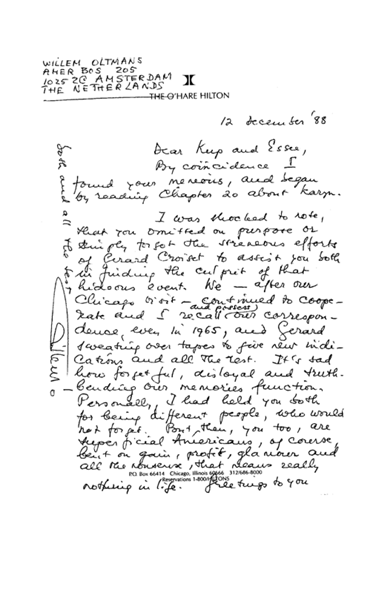 WILLEM OLTMANS
AMER BOS 205
1025 ZG AMSTERDAM
THE NETHERLANDS
THE O'HARE HILTON
12 December '88
Dear Kup and Essee,
By coincidence I
found your memoirs, and began
by reading Chapter 20 about Karyn.
I was shocked to note,
that you omitted on purpose or
simply forgot the streneous efforts
of Gerard Croiset to assist you both
in finding the culprit of that
hideous event. We – after our
Chicago visit – continued to coope-
rate and I recall (and possess) our correspon-
dence, even in 1965, and Gerard
sweating over tapes to give new indi-
cations and all the rest. It's sad
how forgetful, disloyal and truth-
bending our memories function.
Personally, I had held you both
for being different people, who would
not forget. But, then, you too, are
superficial Americans, of course,
bent on gain, profit, glamour and
all the nonsense, that means really
PO Box 66414 Chicago, Illinois 60666 312/686-8000
Reservations 1-800-HILTONS
nothing in life. Greetings to you
both and all the best
Willem O